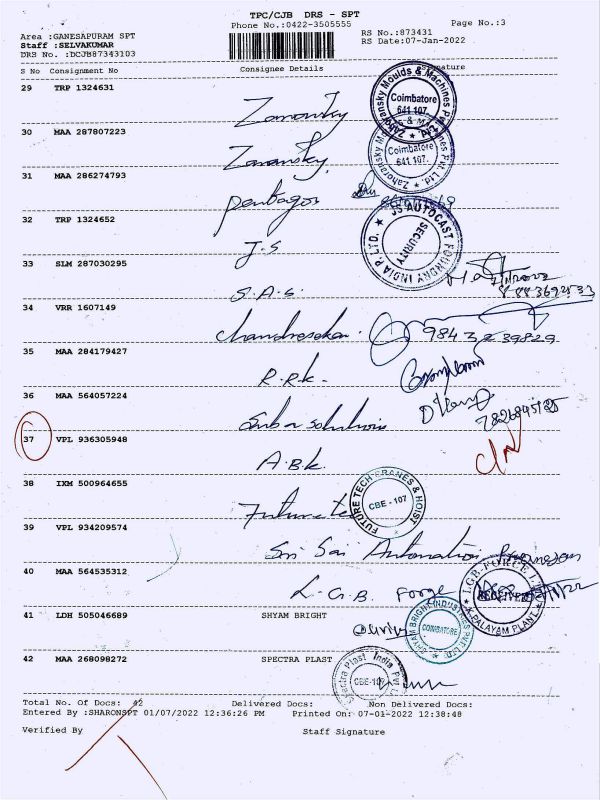 TPC/CJB DRS - SPT
Phone No.:0422-3505555
Page No.:3
Area :GANESAPURAM SPT
Staff :SELVAKUMAR
DRS No. :DCJB87343103
RS No.:873431
RS Date:07-Jan-2022
S No Consignment No Consignee Details Signature
29 TRP 1324631
Zahoransky Moulds & Machines Pvt
Coimbatore
641 107.
30 MAA 287807223
Coimbatore
641 107.
Zahoransky Pvt. Ltd.
31 MAA 286274793
Pentagon
32 TRP 1324652
J.S
JS AUTOCAST FOUNDRY INDIA P. LTD.
SECURITY
33 SLM 287030295
S.A.S.
34 VRR 1607149
Chandrasekar
98432 39829
35 MAA 284179427
R.R.K.
36 MAA 564057224
Suba Solutions
37 VPL 936305948
A.B.K.
38 IXM 500964655
Future tec
FUTURE TECH CRANES & HOIST
CBE - 107
39 VPL 934209574
Sri Sai Automation
40 MAA 564535312
L.G.B. Forge
L.G.B. FORGE LTD
RECEIVED
PALAYAM PLANT
41 LDH 505046689 SHYAM BRIGHT
SHYAM BRIGHT INDUSTRIES PVT LTD.
COIMBATORE
42 MAA 268098272 SPECTRA PLAST
Spectra Plast India Pvt
CBE-107
Total No. Of Docs: 42 Delivered Docs: Non Delivered Docs:
Entered By :SHARONSPT 01/07/2022 12:36:26 PM Printed On: 07-01-2022 12:38:48
Verified By Staff Signature